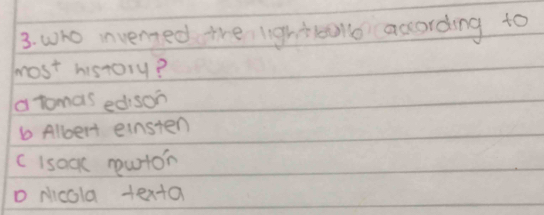 3. Who invented the lightbulb according to
most history?
a Tomas edison
b Albert einsten
c Isack newton
D Nicola texta